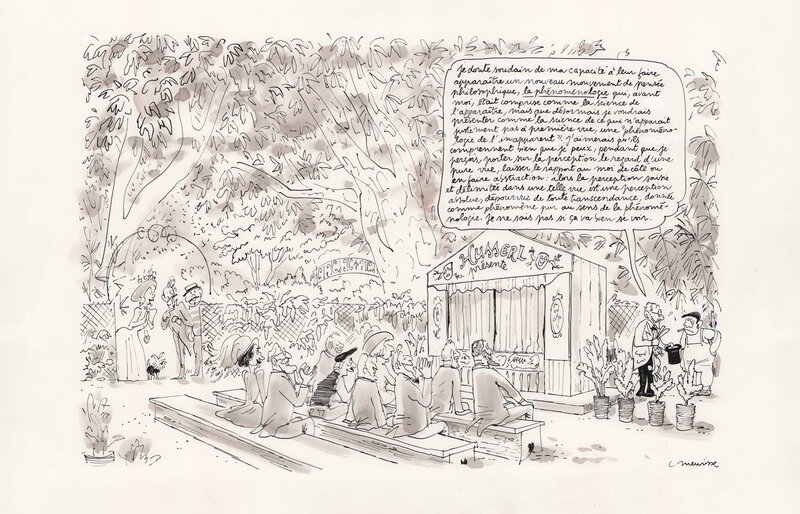 Je doute soudain de ma capacité à leur faire
apparaître un nouveau mouvement de pensée
philosophique, la phénoménologie qui, avant
moi, était comprise comme la science de
l'apparaître, mais que désormais je voudrais
présenter comme la science de ce qui n'apparaît
justement pas à première vue, une "phénoméno-
logie de l'inapparent". J'aimerais qu'ils
comprennent bien que je peux, pendant que je
perçois, porter sur la perception le regard d'une
pure vue, laisser le rapport au moi de côté ou
en faire abstraction : alors la perception saisie
et délimitée dans une telle vue est une perception
absolue, dépourvue de toute transcendance, donnée
comme phénomène pur au sens de la phénomé-
nologie. Je ne sais pas si ça va bien se voir.
HUSSERL
présente
C meurisse